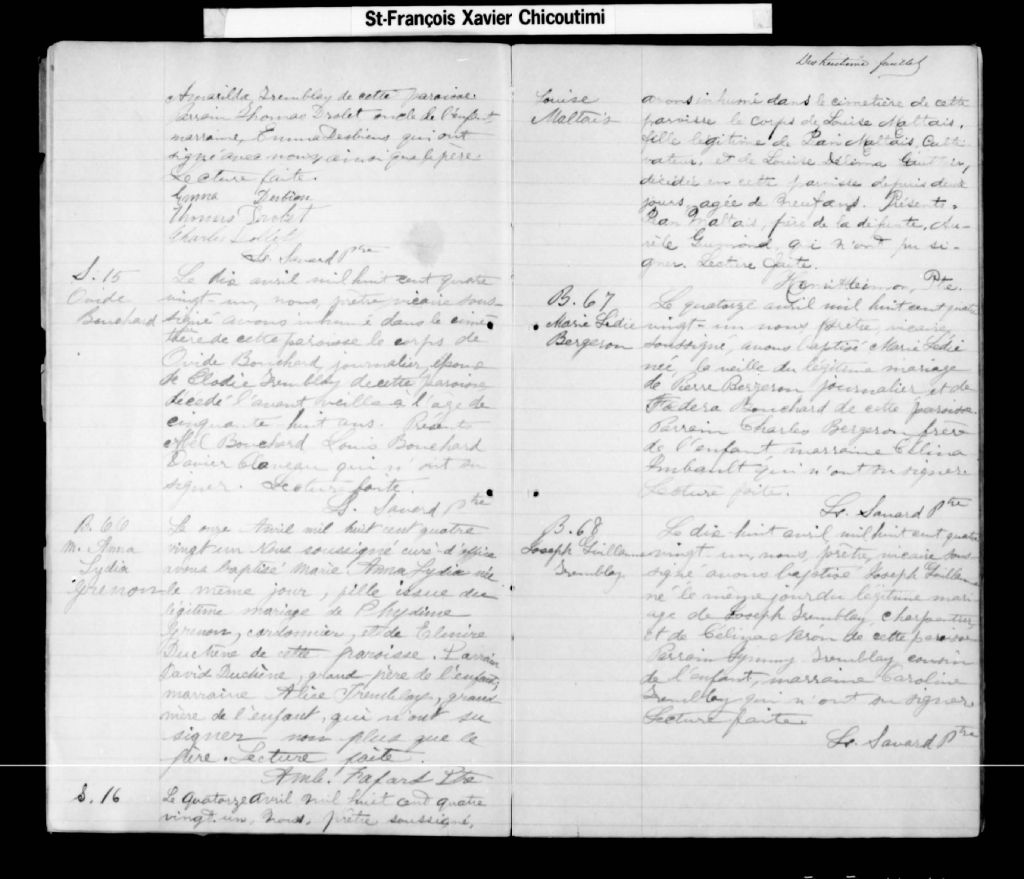 St-François Xavier Chicoutimi
Amarilda Tremblay de cette paroisse
Parrain Thomas Drolet oncle de l'enfant
marraine, Emma Desbiens qui ont
signé avec nous, ainsi que le père
Lecture faite.
Emma Desbien
Thomas Drolet
Charles
Ls. Savard Ptre
S. 15
Ovide
Bouchard
Le dix avril mil huit cent quatre
vingt-un, nous, prêtre vicaire sous-
signé avons inhumé dans le cime-
tière de cette paroisse le corps de
Ovide Bouchard journalier, époux
de Elodie Tremblay de cette paroisse
décédé l'avant veille à l'âge de
cinquante-huit ans. Présents
Abel Bouchard Louis Bouchard
Xavier Claveau qui n'ont su
signer. Lecture faite.
Ls. Savard Ptre
B. 66
M. Anna
Lydia
Grenon
Le onze Avril mil huit cent quatre
vingt un Nous soussigné curé d'office
avons baptisé Marie Anna Lydia née
le même jour, fille issue du
légitime mariage de Phydime
Grenon, cordonnier, et de Elmire
Duchène de cette paroisse. Parrain
David Duchène, grand père de l'enfant,
marraine Alice Tremblay, grand
mère de l'enfant, qui n'ont su
signer non plus que le
père. Lecture faite.
Amb. Fafard Ptre
S. 16
Le quatorze avril mil huit cent quatre
vingt un, nous, prêtre soussigné,
Dix huitième feuillet
Louise
Maltais
avons inhumé dans le cimetière de cette
paroisse le corps de Louise Maltais,
fille légitime de Pian Maltais, Culti-
vateur, et de Louise Gauthier,
décédée en cette paroisse depuis deux
jours, agée de neuf ans. Présents
Pian Maltais, père de la défunte, Au-
rèle Guimond, qui n'ont pu si-
gner. Lecture faite.
Ptre.
B. 67
Marie Ledie
Bergeron
Le quatorze avril mil huit cent quatre
vingt-un nous prêtre, vicaire
soussigné, avons baptisé Marie Ledie
née, la veille du légitime mariage
de Pierre Bergeron journalier et de
Fædera Bouchard de cette paroisse.
Parrain Charles Bergeron frère
de l'enfant, marraine Célina
Imbault qui n'ont su signer
Lecture faite.
Ls. Savard Ptre
B. 68
Joseph Guillaume
Tremblay
Le dix huit avril mil huit cent quatre
vingt un, nous, prêtre, vicaire sous-
signé avons baptisé Joseph Guillaume
né le même jour du légitime mari-
age de Joseph Tremblay, charpentier,
et de Célina Néron de cette paroisse
Parrain Tremblay cousin
de l'enfant, marraine Caroline
Tremblay qui n'ont su signer
Lecture faite
Ls. Savard Ptre